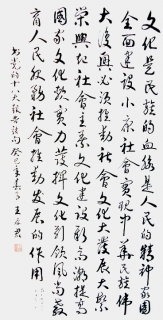 文化是民族的血脉是人民的精神家园
全面建设小康社会实现中华民族伟
大复兴必须推动社会文化大发展大繁
荣兴起社会主义文化建设新高潮提高
国家文化软实力发挥文化引领风尚教
育人民服务社会推动发展的作用
书党的十八大报告语句 癸巳年 王